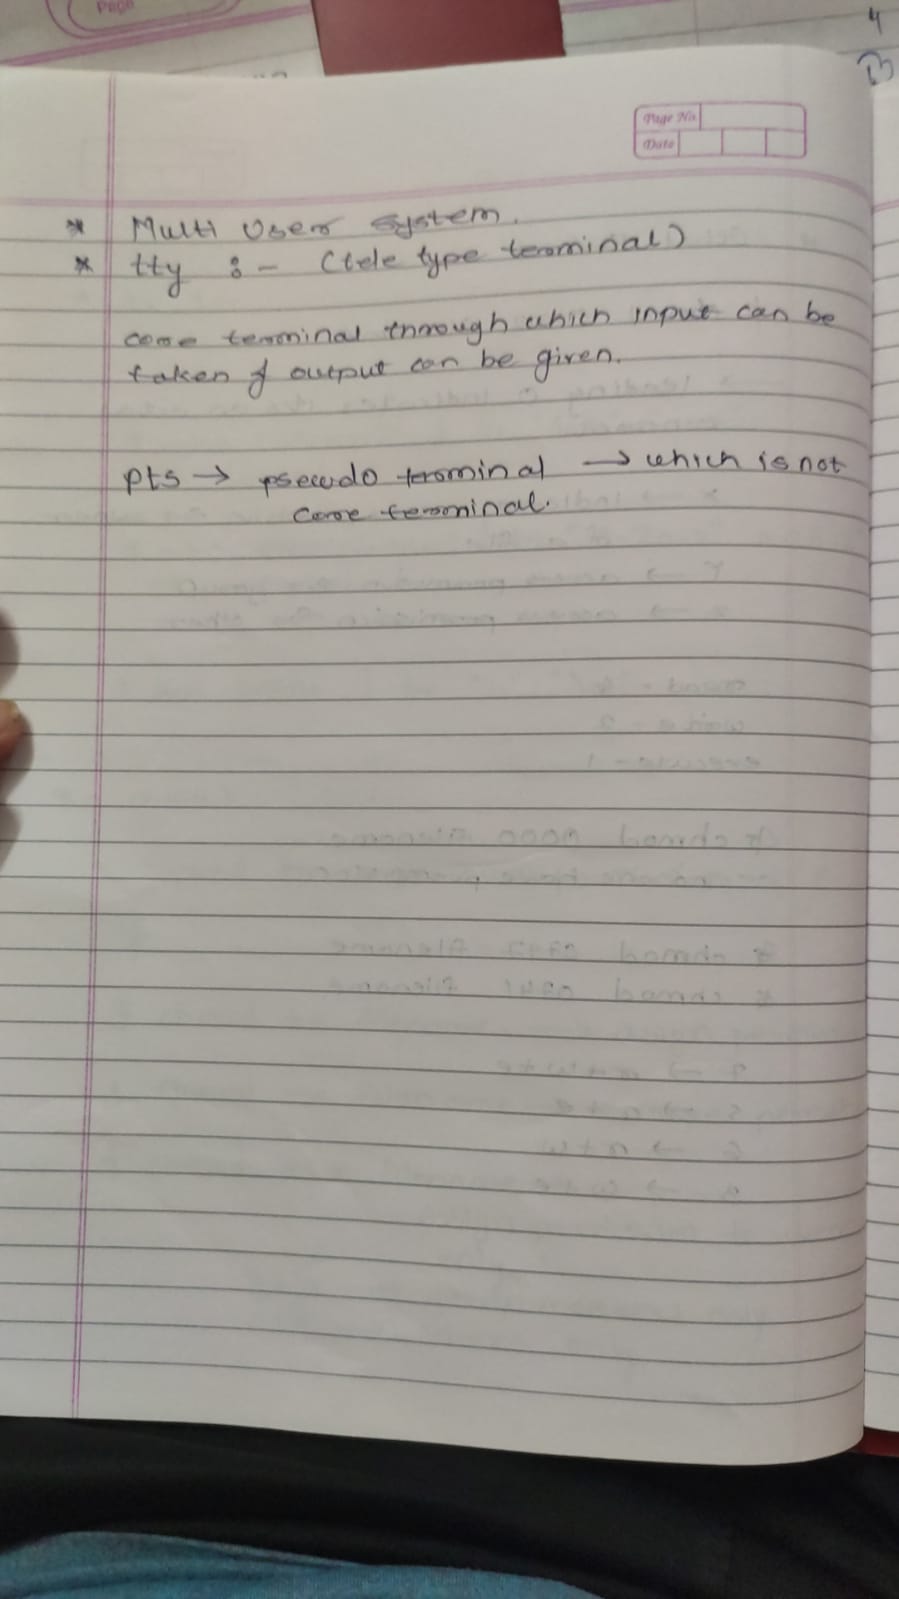 Page
4
Page No
Date
* Multi User System.
* tty :- (tele type terminal)
core terminal through which input can be
taken & output can be given.
pts → pseudo terminal → which is not
core terminal.